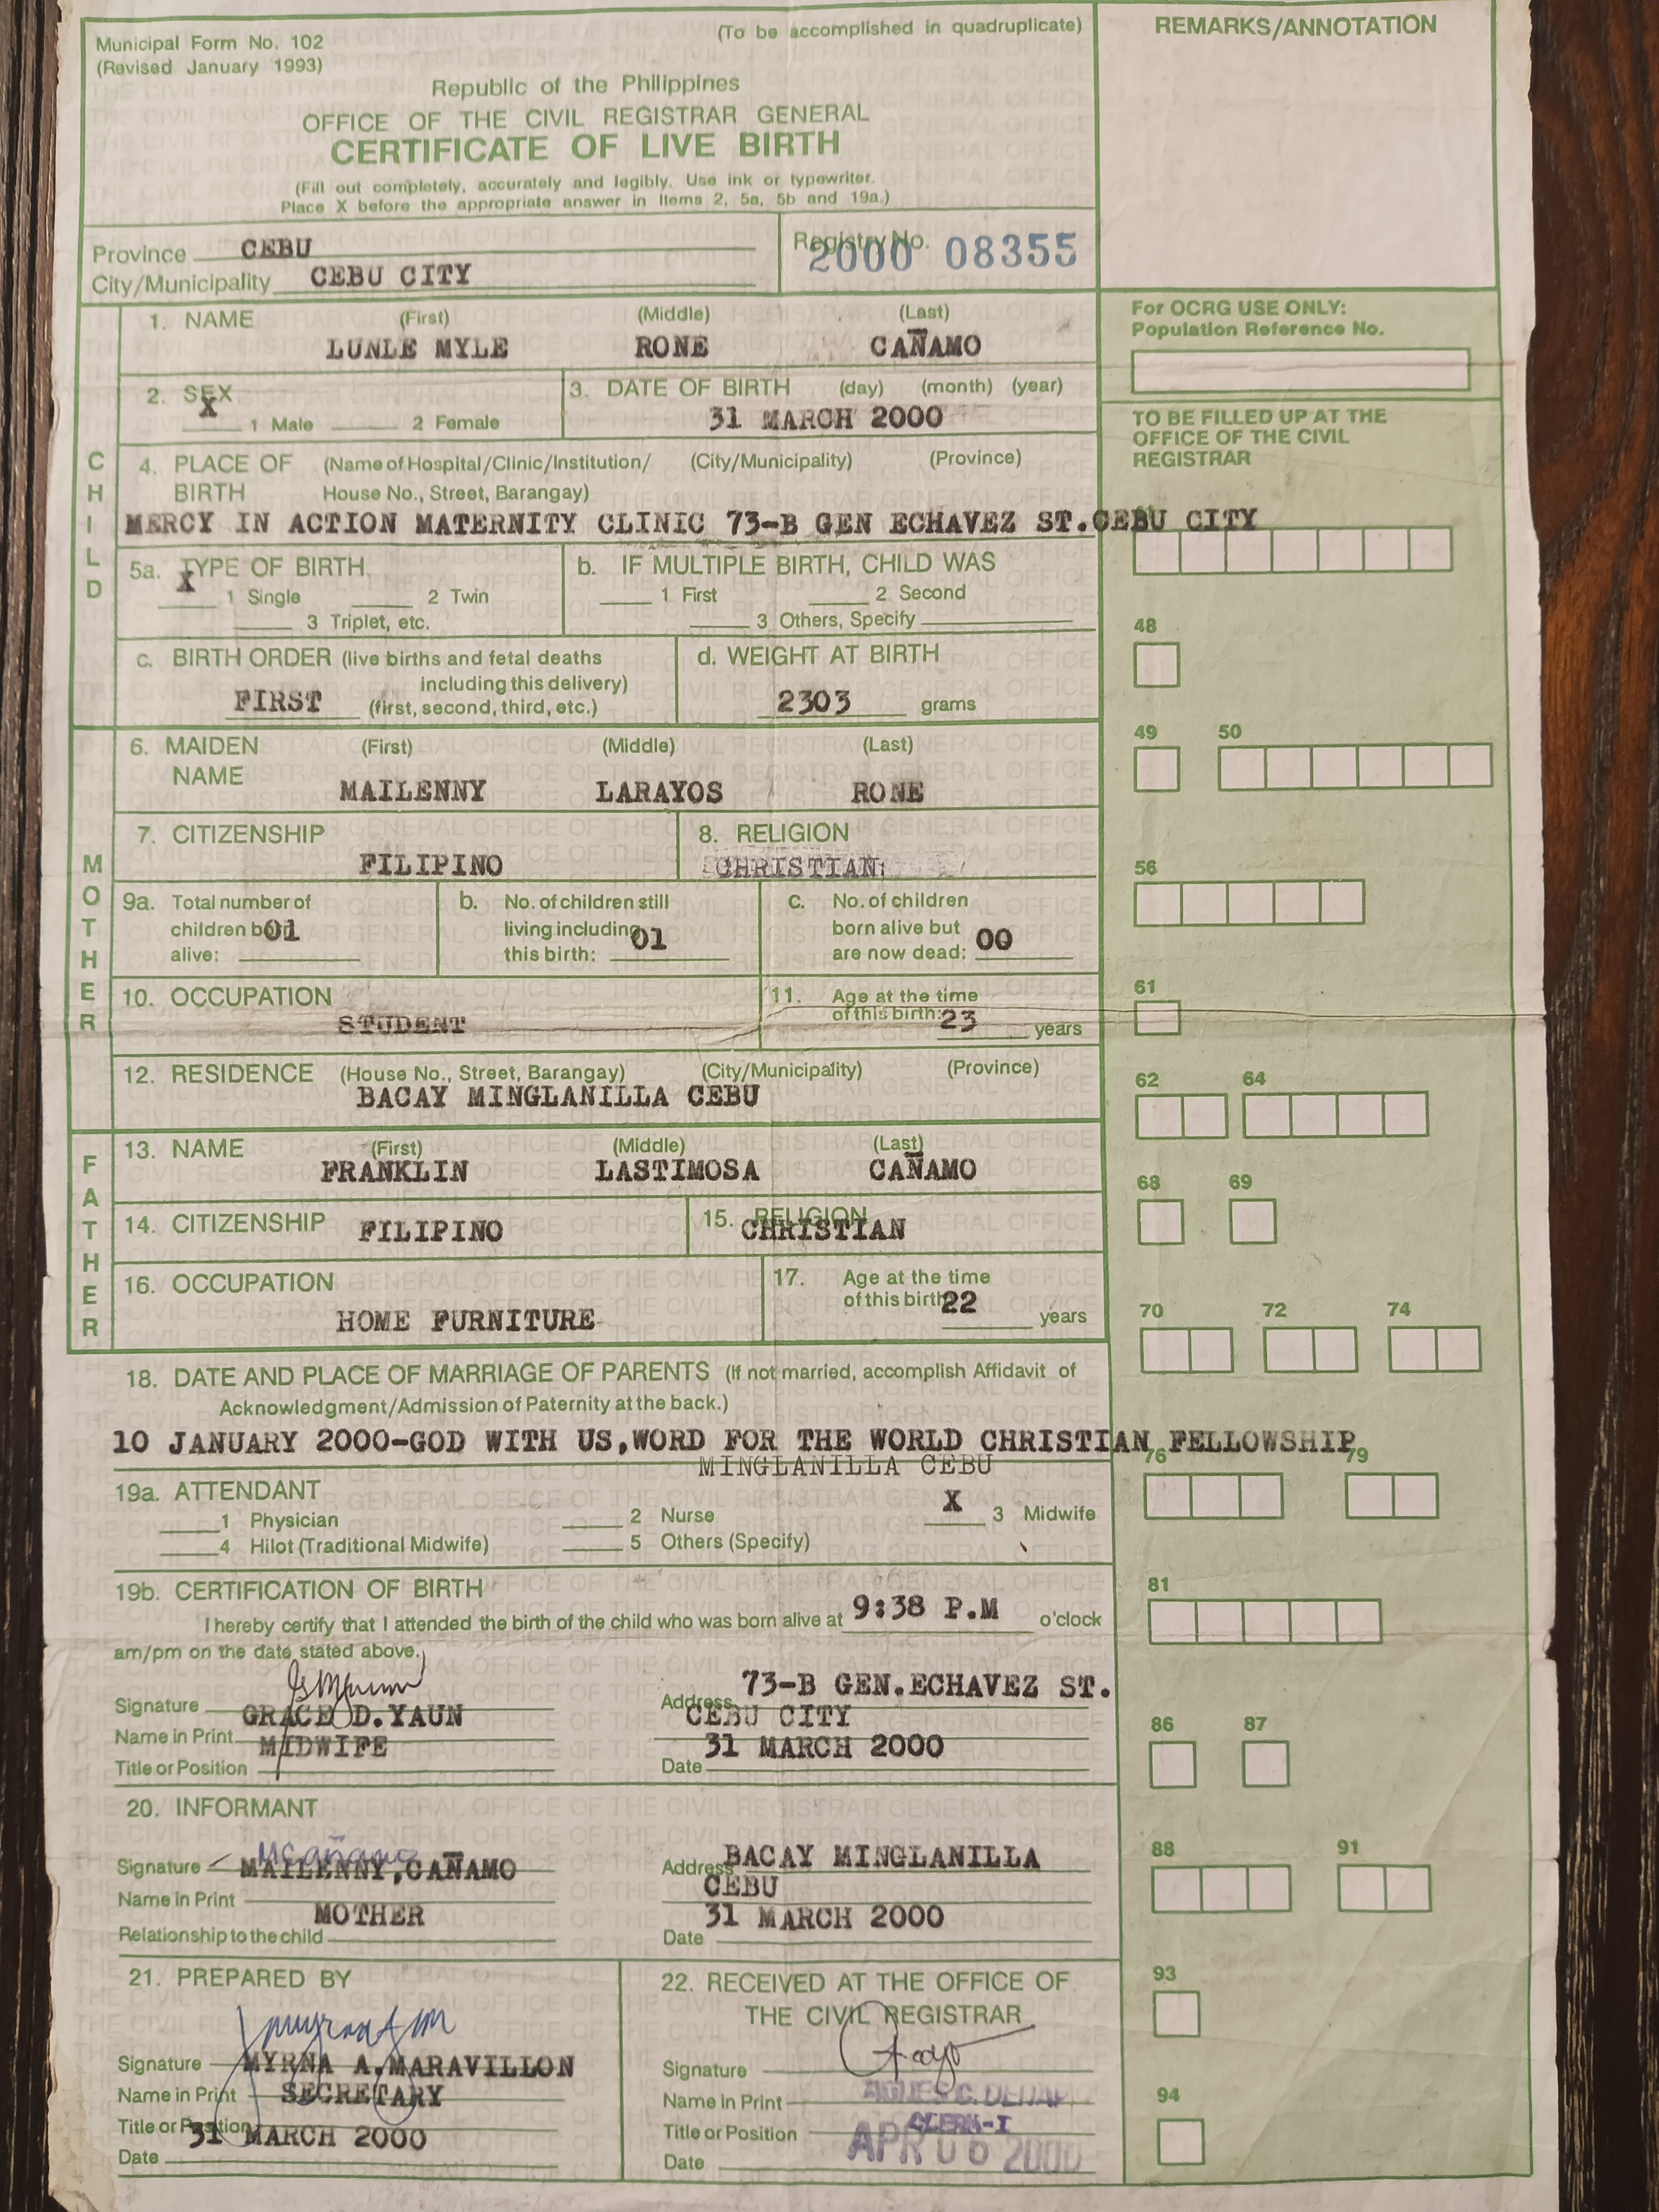 Municipal Form No. 102
(Revised January 1993)
(To be accomplished in quadruplicate)
Republic of the Philippines
OFFICE OF THE CIVIL REGISTRAR GENERAL
CERTIFICATE OF LIVE BIRTH
(Fill out completely, accurately and legibly. Use ink or typewriter.
Place X before the appropriate answer in Items 2, 5a, 5b and 19a.)
REMARKS/ANNOTATION
Province CEBU
City/Municipality CEBU CITY
Registry No. 2000 08355
For OCRG USE ONLY:
Population Reference No.
TO BE FILLED UP AT THE
OFFICE OF THE CIVIL
REGISTRAR
CHILD
1. NAME (First) (Middle) (Last)
LUNLE MYLE RONE CAÑAMO
2. SEX
X 1 Male 2 Female
3. DATE OF BIRTH (day) (month) (year)
31 MARCH 2000
4. PLACE OF (Name of Hospital/Clinic/Institution/ (City/Municipality) (Province)
BIRTH House No., Street, Barangay)
MERCY IN ACTION MATERNITY CLINIC 73-B GEN ECHAVEZ ST.CEBU CITY
5a. TYPE OF BIRTH
X 1 Single 2 Twin
3 Triplet, etc.
b. IF MULTIPLE BIRTH, CHILD WAS
1 First 2 Second
3 Others, Specify
48
c. BIRTH ORDER (live births and fetal deaths
including this delivery)
FIRST (first, second, third, etc.)
d. WEIGHT AT BIRTH
2303 grams
49 50
MOTHER
6. MAIDEN (First) (Middle) (Last)
NAME
MAILENNY LARAYOS RONE
7. CITIZENSHIP
FILIPINO
8. RELIGION
CHRISTIAN
56
9a. Total number of
children born 01
alive:
b. No. of children still
living including 01
this birth:
c. No. of children
born alive but
are now dead: 00
10. OCCUPATION
STUDENT
11. Age at the time
of this birth: 23 years
61
12. RESIDENCE (House No., Street, Barangay) (City/Municipality) (Province)
BACAY MINGLANILLA CEBU
62 64
FATHER
13. NAME (First) (Middle) (Last)
FRANKLIN LASTIMOSA CAÑAMO
68 69
14. CITIZENSHIP FILIPINO
15. RELIGION
CHRISTIAN
16. OCCUPATION
HOME FURNITURE
17. Age at the time
of this birth 22 years
70 72 74
18. DATE AND PLACE OF MARRIAGE OF PARENTS (If not married, accomplish Affidavit of
Acknowledgment/Admission of Paternity at the back.)
10 JANUARY 2000-GOD WITH US,WORD FOR THE WORLD CHRISTIAN FELLOWSHIP
MINGLANILLA CEBU
76 79
19a. ATTENDANT
1 Physician 2 Nurse X 3 Midwife
4 Hilot (Traditional Midwife) 5 Others (Specify)
19b. CERTIFICATION OF BIRTH
I hereby certify that I attended the birth of the child who was born alive at 9:38 P.M o'clock
am/pm on the date stated above.
81
Signature
GRACE D.YAUN
Name in Print
MIDWIFE
Title or Position
73-B GEN.ECHAVEZ ST.
Address
CEBU CITY
31 MARCH 2000
Date
86 87
20. INFORMANT
MCañamo
Signature MAILENNY,CAÑAMO
Name in Print
MOTHER
Relationship to the child
BACAY MINGLANILLA
Address
CEBU
31 MARCH 2000
Date
88 91
21. PREPARED BY
Signature MYRNA A.MARAVILLON
Name in Print SECRETARY
Title or Position
31 MARCH 2000
Date
22. RECEIVED AT THE OFFICE OF
THE CIVIL REGISTRAR
Signature
Name in Print
Title or Position CLERK-I
APR 06 2000
Date
93
94